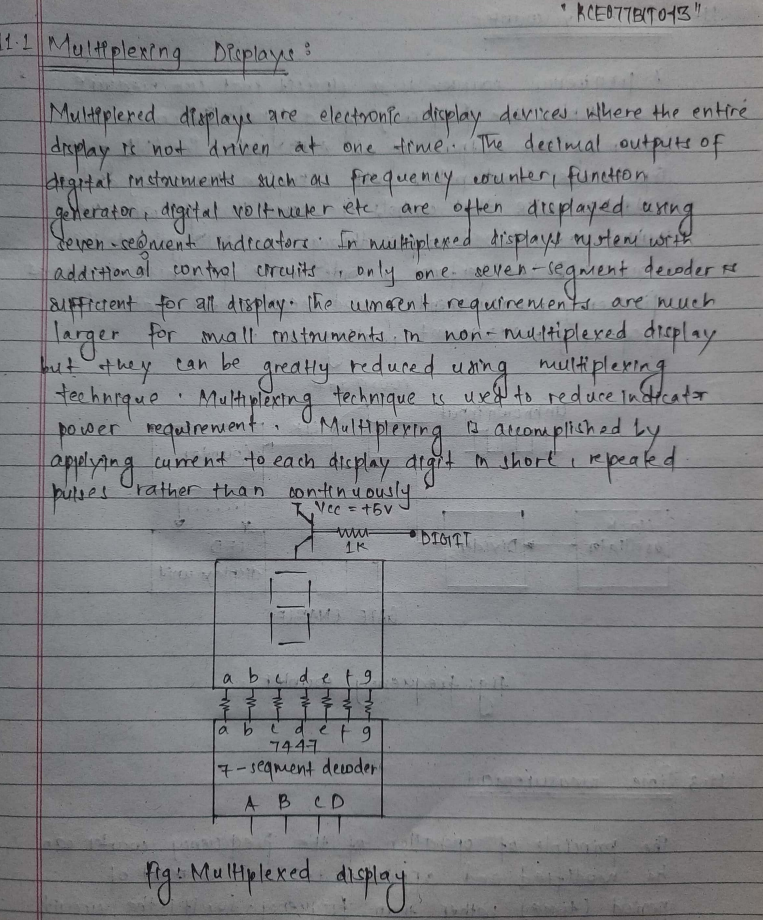 "KCE077BIT013"
11.1 Multiplexing Displays:
Multiplexed displays are electronic display devices where the entire
display is not driven at one time. The decimal outputs of
digital instruments such as frequency counter, function
generator, digital voltmeter etc are often displayed using
seven-segment indicators. In multiplexed displays system with
additional control circuits, only one seven-segment decoder is
sufficient for all display. The current requirements are much
larger for small instruments in non-multiplexed display
but they can be greatly reduced using multiplexing
technique. Multiplexing technique is used to reduce indicator
power requirement. Multiplexing is accomplished by
applying current to each display digit in short, repeated
pulses rather than continuously
Vcc = +5V
1K DIGIT
a b c d e f g
a b c d e f g
7447
7-segment decoder
A B C D
Fig: Multiplexed display